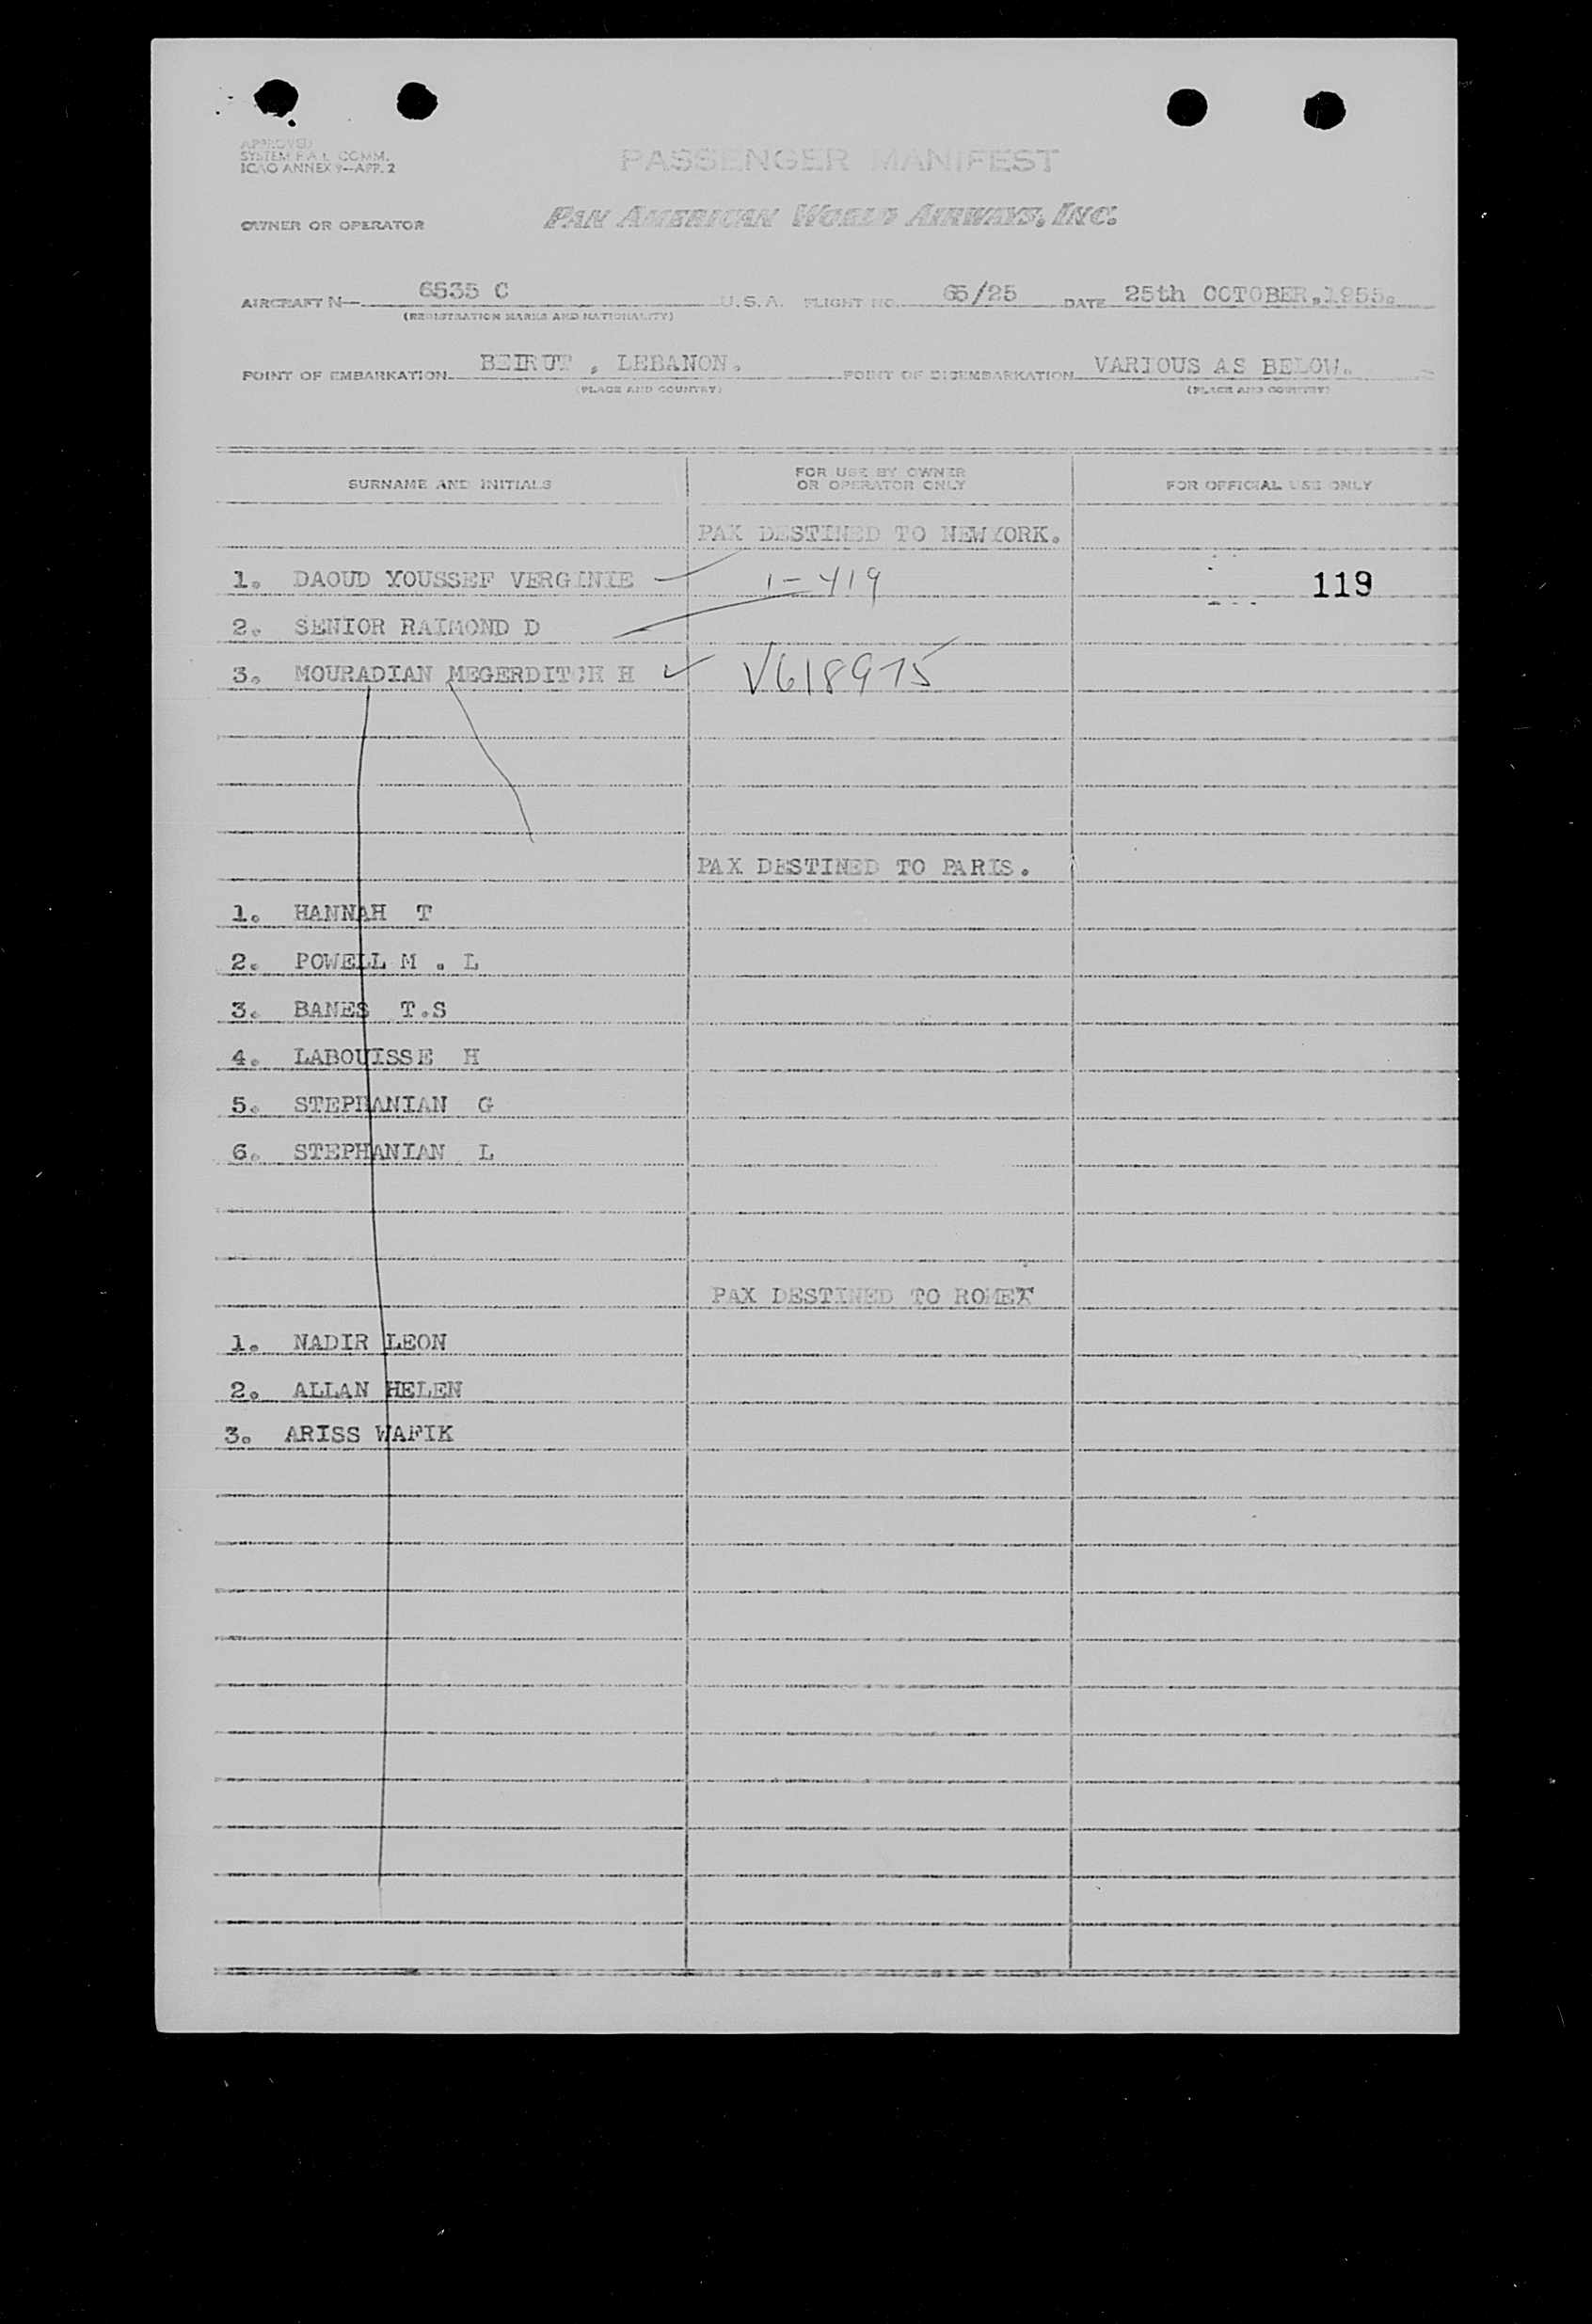 APPROVED
SYSTEM F.A.L. COMM.
ICAO ANNEX 9—APP. 2
PASSENGER MANIFEST
OWNER OR OPERATOR PAN AMERICAN WORLD AIRWAYS, INC.
AIRCRAFT N— 6535 C U.S.A. FLIGHT NO. 65/25 DATE 25th OCTOBER,1955.
(REGISTRATION MARKS AND NATIONALITY)
POINT OF EMBARKATION BEIRUT , LEBANON. POINT OF DISEMBARKATION VARIOUS AS BELOW.
(PLACE AND COUNTRY) (PLACE AND COUNTRY)
SURNAME AND INITIALS FOR USE BY OWNER OR OPERATOR ONLY FOR OFFICIAL USE ONLY
PAX DESTINED TO NEWYORK.
1. DAOUD YOUSSEF VERGINIE 1-419 119
2. SENIOR RAIMOND D
3. MOURADIAN MEGERDITCH H V618975
PAX DESTINED TO PARIS.
1. HANNAH T
2. POWELL M . L
3. BANES T.S
4. LABOUISSE H
5. STEPHANIAN G
6. STEPHANIAN L
PAX DESTINED TO ROME
1. NADIR LEON
2. ALLAN HELEN
3. ARISS WAFIK